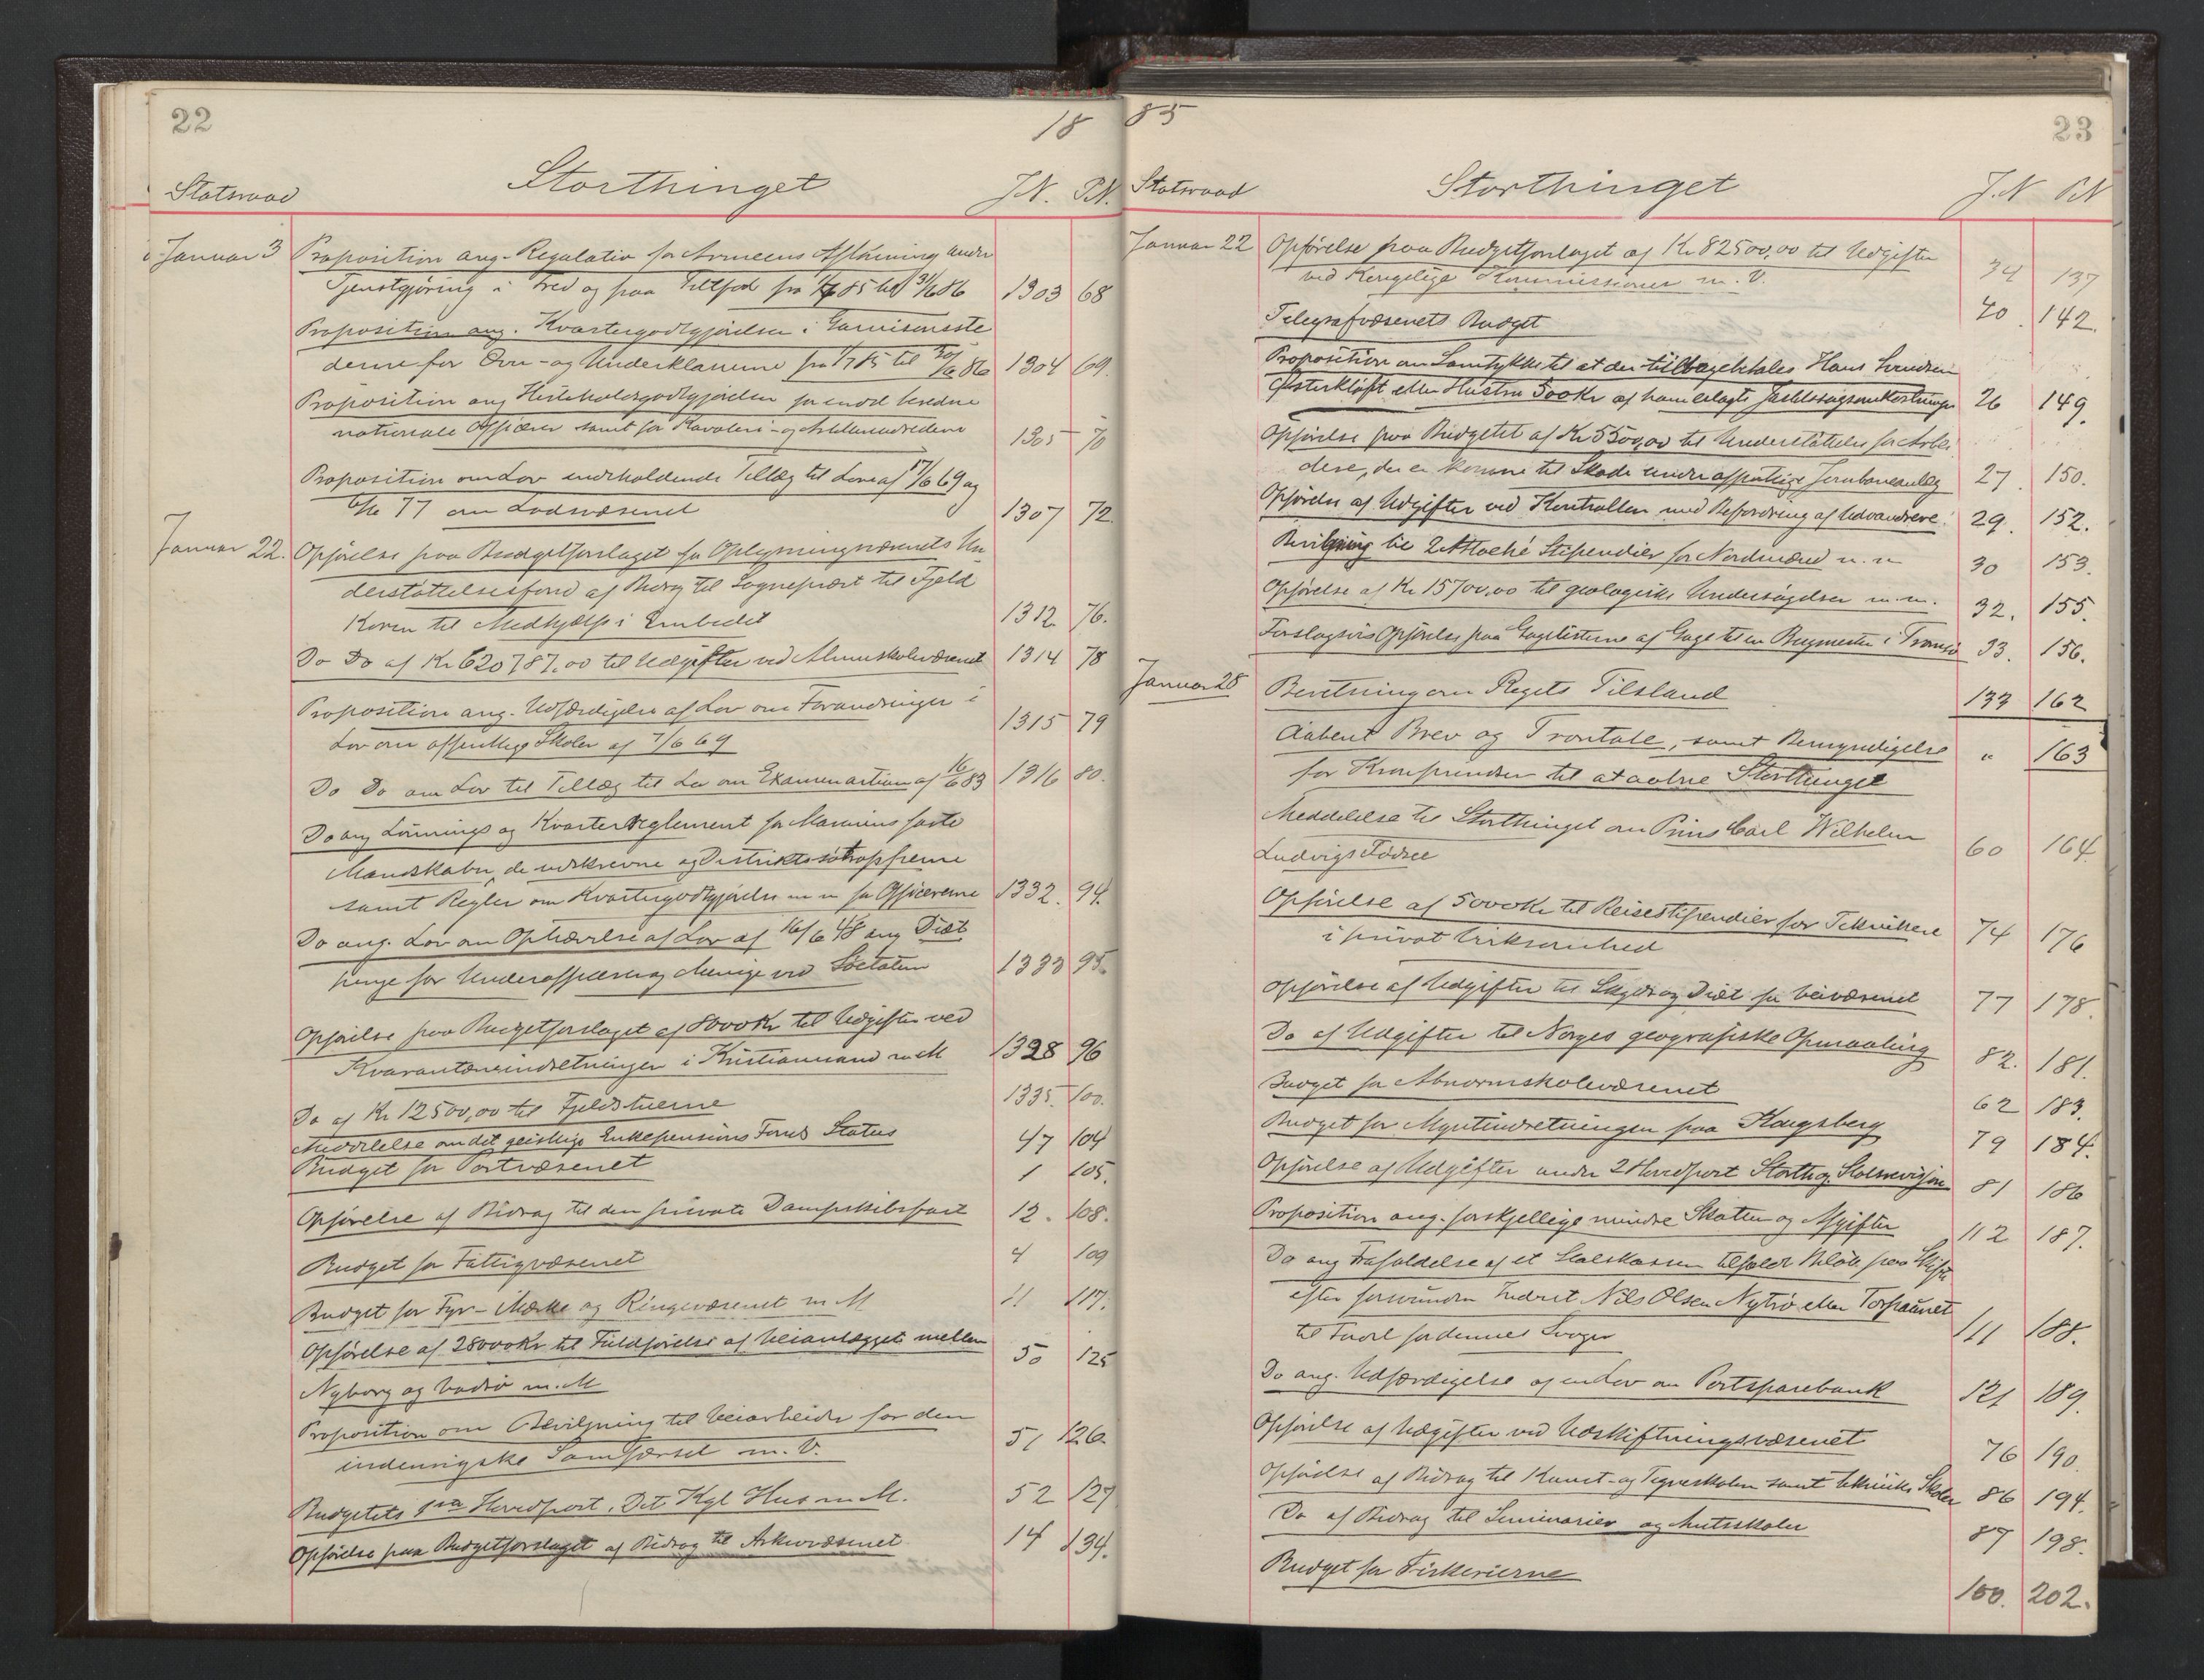 22
18
Statsraad
Storthinget
J.N. P.N.
Januar 3 Proposition ang. Regulativ for Armeens Aflönning under
Tjenstgjöring i Fred og paa Feltfod fra 1/7 85 til 31/6 86 1303 68
Proposition ang. Kvartergodtgjörelse i Garnisonsste
derne for Over- og Underklasserne fra 1/7 85 til 30/6 86 1304 69.
Proposition ang Hesteholdsgodtgjörelse for beredne
nationale Officerer samt for Kavaleri- og 1305 70
Proposition om Lov indeholdende Tillæg til Love af 17/6 69 og
6/6 77 om Lodsvæsenet 1307 72.
Januar 22. Opförelse paa Budgetforslaget for Oplysningsvæsenets Un
derstöttelsesfond af Bidrag til Sogneprest til Fjeld
Koren til Medhjælp i Embedet 1312 76.
Do Do af Kr 620787.00 til Udgifter ved Almueskolevæsenet 1314 78
Proposition ang. Udfærdigelse af Lov om Forandringer i
Lov om offentlige Skoler af 7/6 69 1315 79
Do Do om Lov til Tillæg til Lov om Examen artium af 16/6 83 1316 80.
Do ang Lönnings og Kvarterreglement for Marinens faste
Mandskaber, de udskrevne og Distriktssötropperne
samt Regler om Kvartergodtgjörelse m m for Officererne 1332. 94.
Do ang. Lov om Ophævelse af Lov af 16/6 48 ang Diæt
penge for Underofficerer og Menige ved Söetaten 1333 95.
Opförelse paa Budgetforslaget af 8000 Kr til Udgifter ved
Kvarantæneindretningen i Kristianssand m M 1328 96
Do af Kr 12500,00 til Fjeldstuerne 1335. 100.
Meddelelse om det geistlige Enkepensions Fonds Status 47 104
Budget for Postvæsenet 1 105.
Opförelse af Bidrag til den private Dampskibsfart 12. 108.
Budget for Fattigvæsenet 4 109
Budget for Fyr- Mærke og Ringevæsenet m M 11 117.
Opförelse af 28000 Kr til Fuldförelse af Veianlægget mellem
Nyborg og Vadsö m. M 50 125
Proposition om Bevilgning til Veiarbeider for den
indenrigske Samfærsel m. V. 51 126
Budgettets 1ste Hovedpost. Det Kgl Hus m M. 52 127
Opförelse paa Budgetforslaget af Bidrag til Arkivvæsenet 14 134.
85
23
Statsraad
Storthinget
J.N P.N
Januar 22 Opförelse paa Budgetforslaget af Kr 82500,00 til Udgifter
ved Kongelige Kommissioner m. V. 34 137
Telegrafvæsenets Budget 40. 142.
Proposition om Samtykke til at der tilbagebetales Hans
eller Hustru 500 Kr af ham erlagte 26 149.
Opförelse paa Budgettet af Kr 5500,00 til Understöttelse for Arbei
dere, der er komne til Skade under offentlige Jernbaneanlæg 27. 150.
Opförelse af Udgifter ved Kontrollen med Befordring af Udvandrere. 29. 152.
Bevilgning til 2 Attaché Stipendier for Nordmænd m. m 30 153.
Opförelse af Kr 15700,00 til geologiske Undersögelser m. m. 32. 155.
Forslagsvis Opförelse paa Gagelisterne af Gage til en Bygmester i Tromsö 33. 156.
Januar 28 Beretning om Rigets Tilstand 133 162
Aabent Brev og Trontale, samt Bemyndigelse
for Kronprindsen til at aabne Storthinget " 163
Meddelelse til Storthinget om Prins Carl Wilhelm
Ludvigs Födsel 60 164.
Opförelse af 5000 Kr til Reisestipendier for Teknikere
i privat Virksomhed 74 176
Opförelse af Udgifter til Skyds og Diæt for Veivæsenet 77 178.
Do af Udgifter til Norges geografiske Opmaaling 82. 181.
Budget for Abnormskolevæsenet 62 183.
Budget for Myntindretningen paa Kongsberg 79 184.
Opförelse af Udgifter under 2 Hovedpost Storth og Statsrevision 81 186
Proposition ang. forskjellige mindre Skatter og Afgifter 112 187.
Do ang Frafaldelse af et Statskassen tilfaldt Belöb paa Skifte
efter forsvunden Indrest. Nils Olsen Nytrö eller Torpaunet
til Fordel for dennes Svoger 111 188.
Do ang. Udfærdigelse af en Lov om Postsparebank 121 189.
Opförelse af Udgifter ved Udskiftningsvæsenet 76 190.
Opförelse af Bidrag til Kunst- og Tegneskolen samt tekniske Skoler 86 194.
Do af Bidrag til Seminarier og Amtsskoler 87 198.
Budget for Fiskerierne 100. 202.